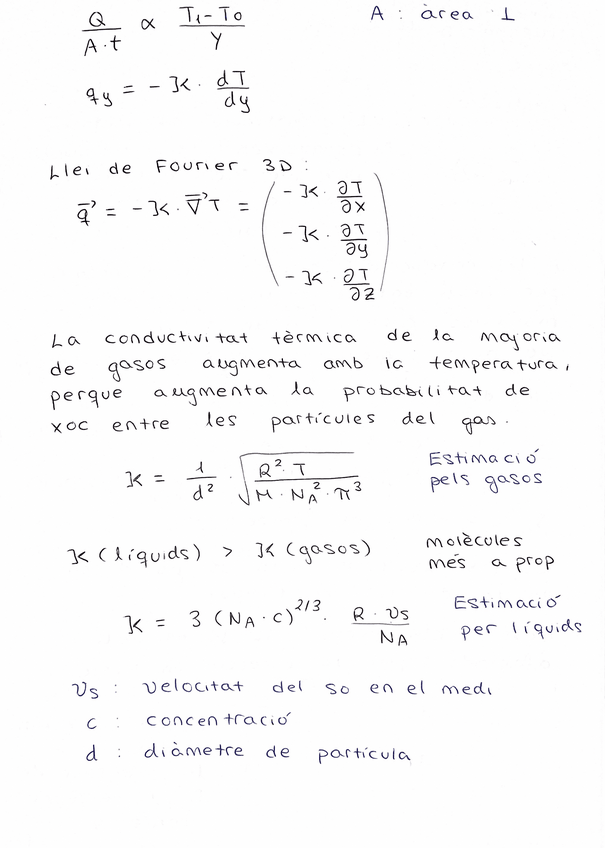 Q / A·t ∝ T₁-T₀ / Y    A : àrea ⊥
qy = - K · dT/dy
Llei de Fourier 3D :
q⃗ = - K · ∇⃗T = ( - K · ∂T/∂x
- K · ∂T/∂y
- K · ∂T/∂z )
La conductivitat tèrmica de la majoria
de gasos augmenta amb la temperatura,
perque augmenta la probabilitat de
xoc entre les partícules del gas.
K = 1/d² · √(R²·T / M·N_A²·π³)    Estimació
pels gasos
K (líquids) > K (gasos)    molècules
més a prop
K = 3 (N_A · c)^2/3 · R · vs / N_A    Estimació
per líquids
vs : velocitat del so en el medi
c : concentració
d : diàmetre de partícula